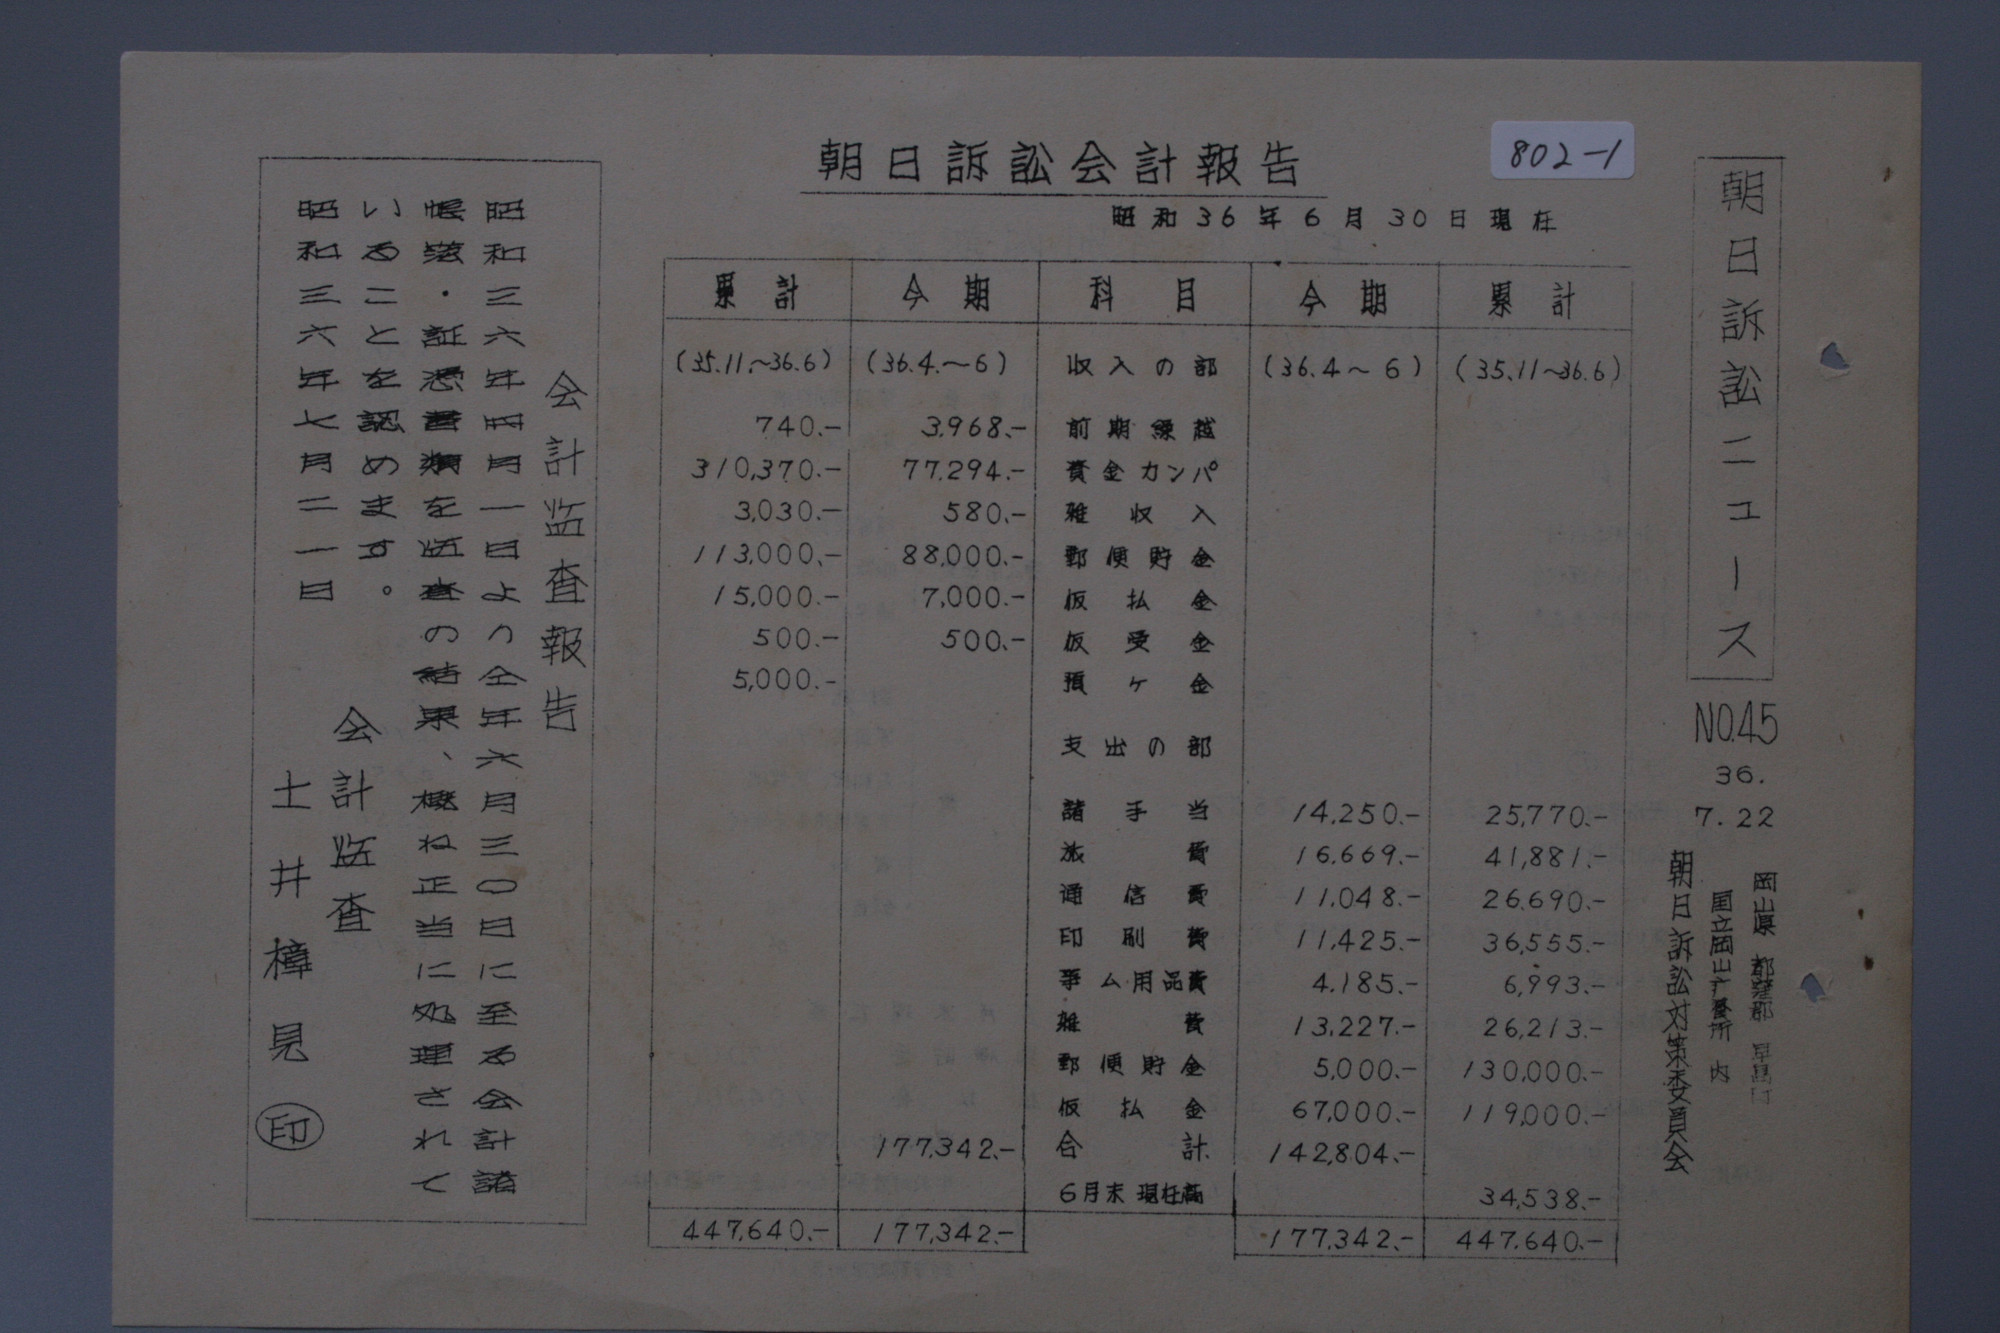 802-1
朝日訴訟ニュース
NO.45
36.
7.22
岡山県都窪郡早島町
国立岡山療養所内
朝日訴訟対策委員会
朝日訴訟会計報告
昭和36年6月30日現在
累計 今期 科目 今期 累計
(35.11.~36.6) (36.4.~6) 収入の部 (36.4~6) (35.11~36.6)
740.- 3,968.- 前期繰越
310,370.- 77,294.- 資金カンパ
3,030.- 580.- 雑収入
113,000.- 88,000.- 郵便貯金
15,000.- 7,000.- 仮払金
500.- 500.- 仮受金
5,000.- 預ケ金
支出の部
諸手当 14,250.- 25,770.-
旅費 16,669.- 41,881.-
通信費 11,048.- 26,690.-
印刷費 11,425.- 36,555.-
事ム用品費 4,185.- 6,993.-
雑費 13,227.- 26,213.-
郵便貯金 5,000.- 130,000.-
仮払金 67,000.- 119,000.-
177,342.- 合計 142,804.-
6月末現在高 34,538.-
447,640.- 177,342.- 177,342.- 447,640.-
会計監査報告
昭和三六年四月一日より仝年六月三〇日に至る会計諸
帳簿・証憑書類を監査の結果、概ね正当に処理されて
いることを認めます。
昭和三六年七月二一日
会計監査
土井樟見 印